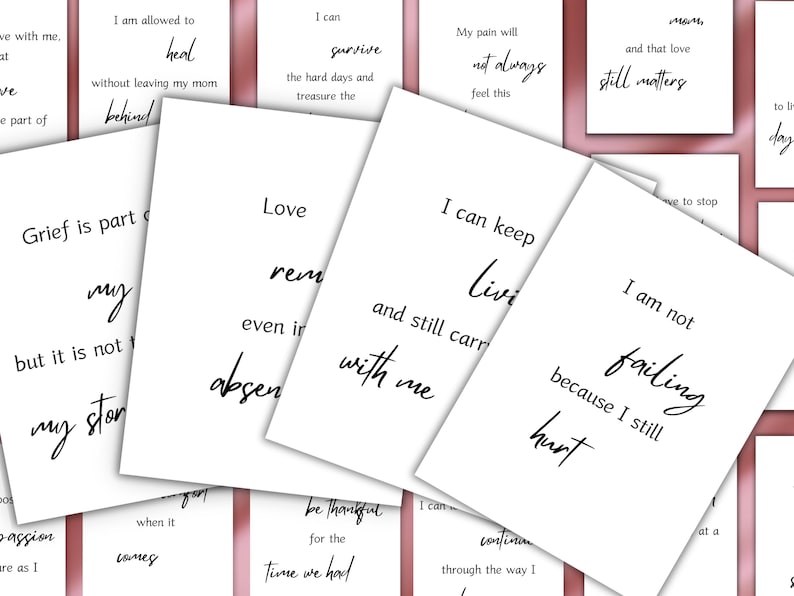 ve with me,
at
ve
e part of
I am allowed to
heal
without leaving my mom
behind
I can
survive
the hard days and
treasure the
My pain will
not always
feel this
mom,
and that love
still matters
to li
day
ve to stop
Grief is part o
my
but it is not t
my stor
Love
rem
even in
absen
I can keep
livi
and still carry
with me
I am not
failing
because I still
hurt
passion
ure as I
when it
comes
be thankful
for the
time we had
I can
continu
through the way I
at a